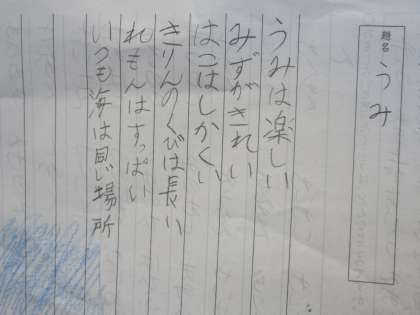 題名
うみ
うみは楽しい
みずがきれい
はこはしかくい
きりんのくびは長い
れもんはすっぱい
いつも海は同じ場所